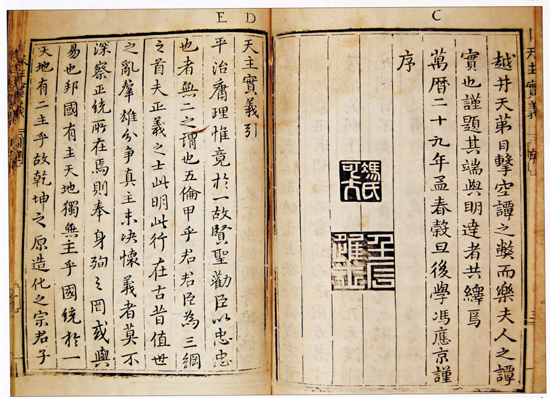 C
天主實義
序
越井天苐目擊空譚之獘而樂夫人之譚
實也謹題其端與明達者共繹焉
萬曆二十九年孟春穀旦後學馮應京謹
序
馮氏可大
壬辰進士
D
天主實義引
E
平治庸理惟竟於一故賢聖勸臣以忠忠
也者無二之謂也五倫甲乎君君臣為三綱
之首夫正義之士此明此行在古昔值世
之亂羣雄分爭真主未決懷義者莫不
深察正統所在焉則奉身殉之罔或與
易也邦國有主天地獨無主乎國統於一
天地有二主乎故乾坤之原造化之宗君子